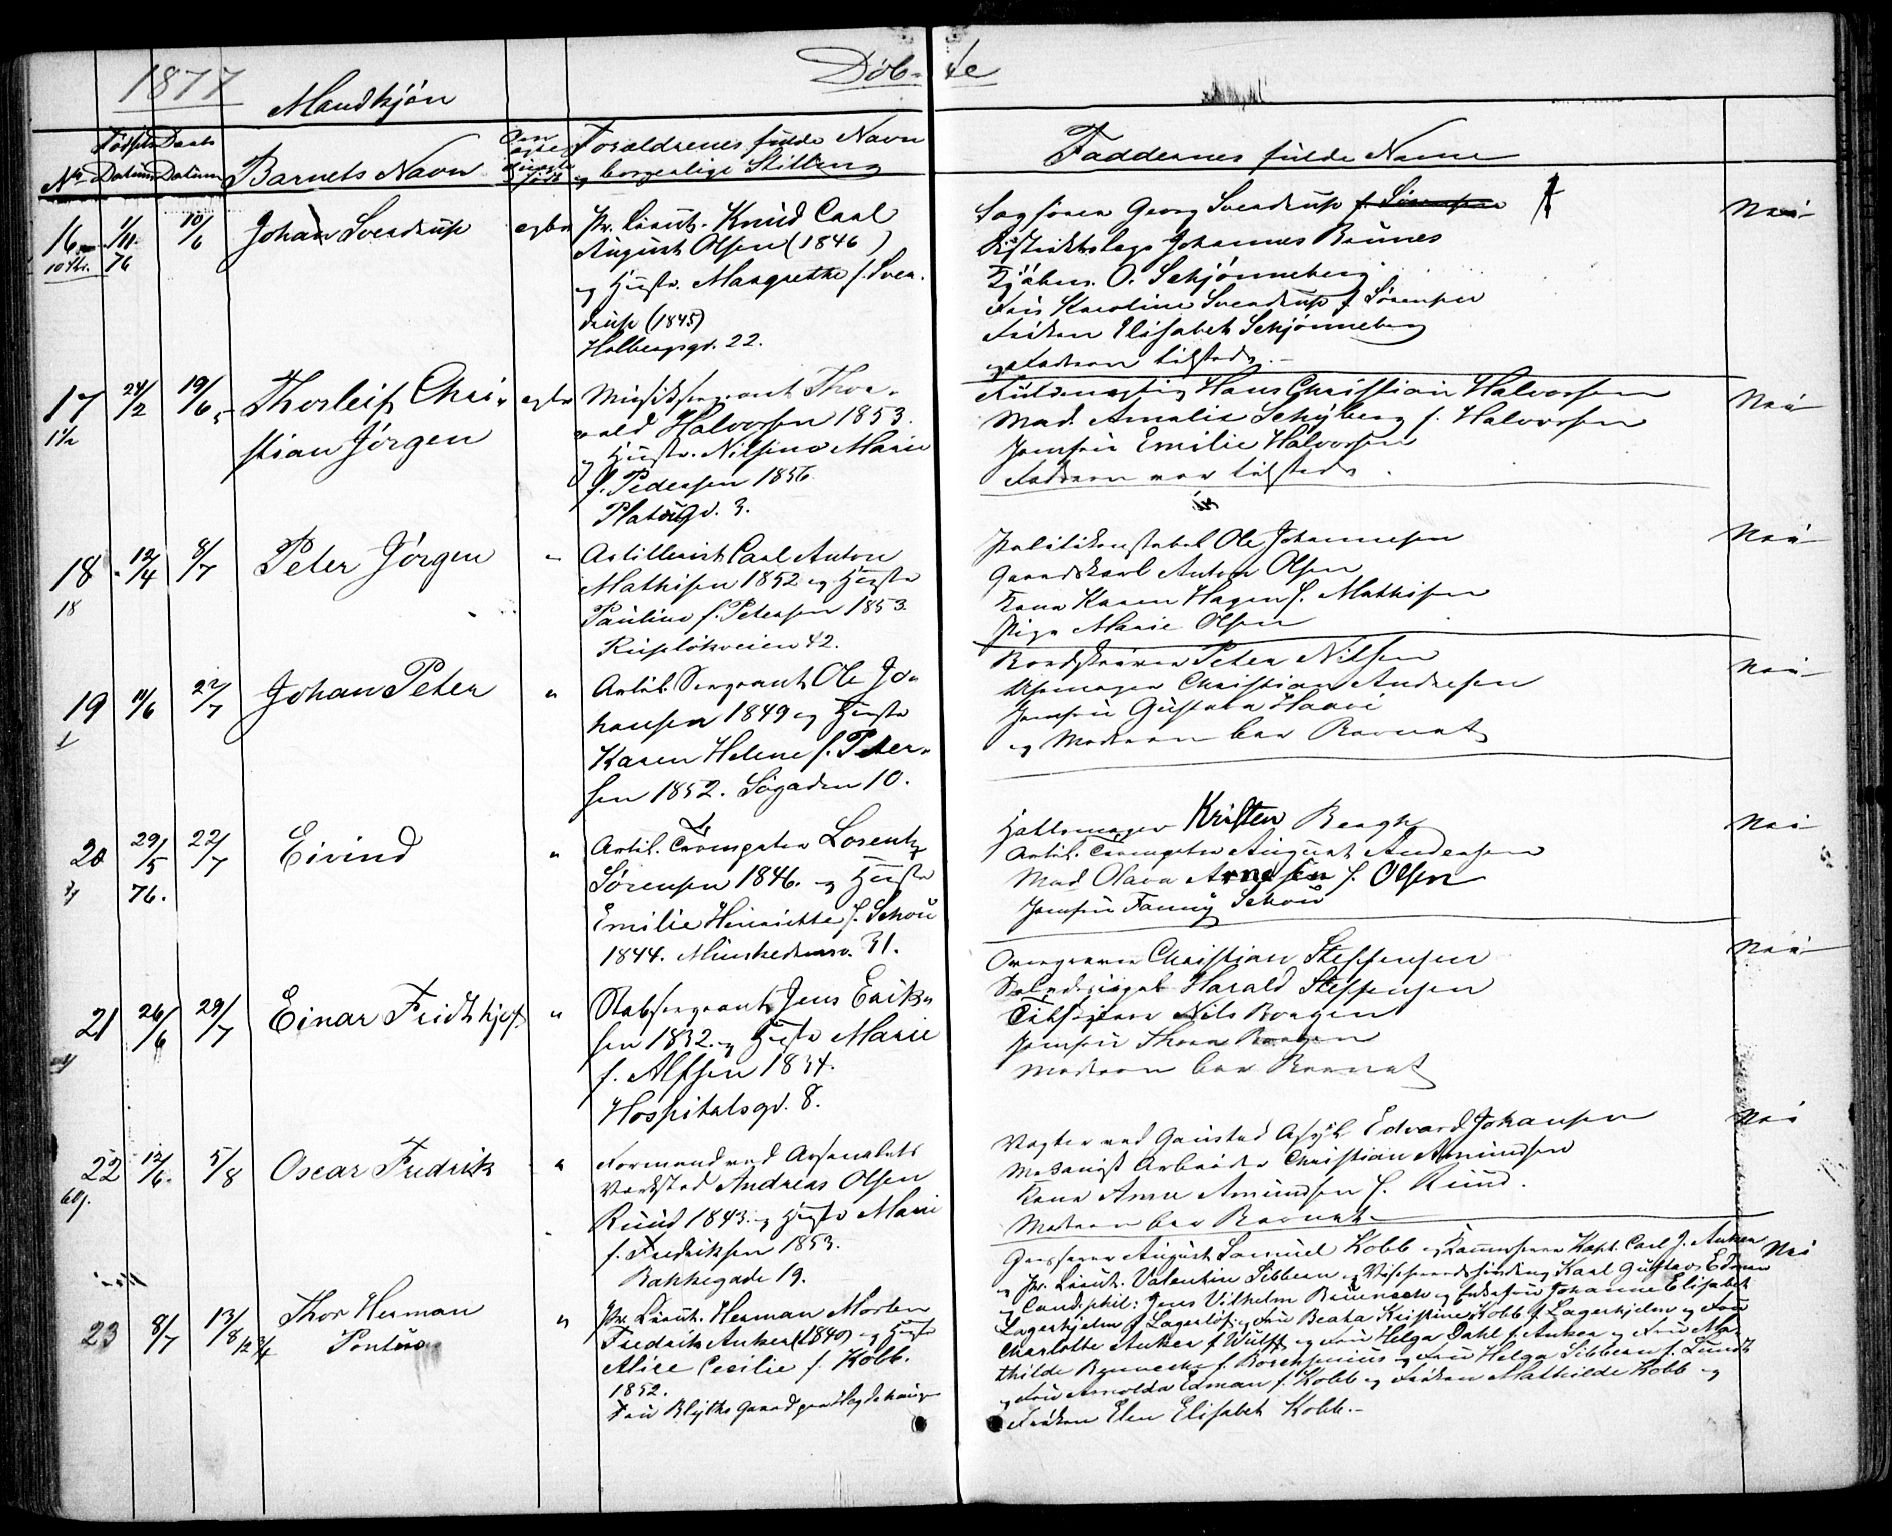 1877 Døb- te
Mandkjøn
Fødsels Daabs
No Datum Datum Barnets Navn
Forældrenes fulde Navn
og borgerlige Stilling
Faddernes fulde Navne
16 1/11 76 10/6 Johan Sverdrup egte
Pr. Lieut. Knud Carl
August Olsen (1846)
og Hustr. Margrethe f. Sver-
drup (1845)
Holbergsgd. 22.
Sagfører Georg Sverdrup f. Sørensen
Distriktslæge Johannes Brunes
Kjøbm. O. Schjønneberg
Frü Karoline Sverdrup f. Sørensen
Frøken Elisabet Schjønneberg
og Faderen tilstede.
Nei
17 24/2 19/6 Thorleif Chri-
stian Jörgen
egte
Musiksergeant Thor-
vald Halvorsen 1853.
og Hustr. Nilsine Marie
f. Pedersen 1856.
Platousgd. 3.
Fuldmægtig Hans Christian Halvorsen
Mad. Amalie Schyberg f. Halvorsen
Jomfrü Emilie Halvorsen
Faderen var tilstede.
Nei
18 12/4 8/7 Peter Jörgen "
18
Artillerist Carl Anton
Mathisen 1852 og Hustr
Pauline f. Petersen 1853.
42.
Politikonstabel Ole Johannesen
Gaardskarl Anton Olsen
Kone Karen Hagen f. Mathisen
Pige Marie Olsen
Nei
19 11/6 22/7 Johan Peter "
1
Artil. Sergeant Ole Jo-
hansen 1849 og Hustr
Karen Helene f. Peter-
sen 1852. Søgaden 10.
Peter Nilsen
Uhrmager Christian Andresen
Jomfrü Gustava
og Moderen bar Barnet
Nei
20 29/5 76. 22/7 Eivind "
Artil. Trompeter Lorentz
Sørensen 1846. og Hustr
Emilie Henriette f. Schou
1844. Munkedamsv. 31.
Hattemager Kristen Bergh
Artil. Trompeter August Andersen
Mad Olava Arnesen f. Olsen
Jomfrü Fanny Schou
Nei
21 26/6 29/7 Einar Fridthjof "
Stabsergeant Jens Erik-
sen 1832. og Hustr Marie
f. Alfsen 1834.
Hospitalsgd. 8.
Christian Steffensen
Harald Steffensen
Nils Borgen
Jomfrü Thora Borgen
Moderen bar Barnet
Nei
22 12/6. 5/8 Oscar Fredrik "
Formand ved Arsenalets
Værksted Andreas Olsen
Ruud 1843. og Hustr Marie
f. Fredriksen 1853.
Bakkegade 19.
Vogter ved Gaustad Asyl Edvard Johansen
Mekanisk Arbeider Christian Amundsen
Kone Anne Amundsen f. Ruud.
Moderen bar Barnet
Nei
23 8/7 13/8 Thor Herman
Pontus
"
Pr. Lieut. Herman Morten
Fredrik Anker (1840) og Hustr
Alice Cecilie f. Kobb.
1852.
Frü Blyths Gaard paa Hægdehaugen
Grosserer August Samuel Kobb og Kammerherre Kapt. Carl J. Anker
og Pr. Lieut. Valentin Sibbern og Karl Gustav Edman
og Cand. phil: Jens Vilhelm og Enkefrü Johanne Elisabet
Lagerhjelm f. Lagerlöf og Frü Beata Kristine Kobb f. Lagerhjelm og Frü
Charlotte Anker f. Wulff og Frü Helga Dahl f. Anker og Frü Ma-
thilde f. og Frü Helga Sibbern f. Lundt
og Frü Arnolda Edman f. Kobb og Frøken Mathilde Kobb og
Frøken Elen Elisabet Kobb.
Nei